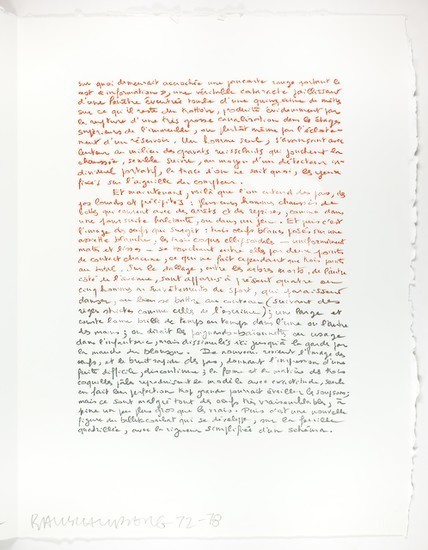 sur quoi demeurait accrochée une pancarte rouge portant le
mot « information », une véritable cataracte jaillissant
d'une fenêtre éventrée tombe d'une quinzaine de mètres
sur ce qu'il reste du trottoir, produite évidemment par
la rupture d'une très grosse canalisation dans les étages
supérieurs de l'immeuble, ou plutôt même par l'éclate-
ment d'un réservoir. Un homme seul, s'avançant avec
lenteur au milieu des gravats
chaussée, semble suivre, au moyen d'un détecteur in-
dividuel portatif, la trace d'on ne sait quoi, les yeux
fixés sur l'aiguille du compteur.
Et maintenant, voilà que l'on entend des pas, des
pas lourds et précipités : plusieurs hommes chaussés de
bottes qui courent avec des arrêts et des reprises, comme dans
une poursuite, ou dans un jeu. Et puis c'est
l'image des œufs qui surgit : trois œufs blancs posés sur une
assiette blanche, les trois corps ellipsoïdes — uniformément
mats et lisses — se touchant entre eux par deux points
de contact chacun, ce que ne fait cependant que trois points
au total. Sur le dallage, entre les arbres morts, de l'autre
côté de l'avenue, sont apparus à présent quatre ou
cinq hommes en survêtements de sport, qui paraissent
danser, ou bien se battre au couteau (suivant des
règles strictes comme celles de l'escrime) ; une large et
courte lame brille de temps en temps dans l'une ou l'autre
des mains ; on dirait les poignards-baïonnettes en usage
dans l'infanterie, mais dissimulés ici jusqu'à la garde par
la manche du blouson. De nouveau revient l'image des
œufs, et le bruit rapide des pas, donnant l'impression d'une
fuite difficile, discontinue ; la forme et la matière des trois
coquilles reproduisent le modèle avec exactitude, seule
en fait leur perfection trop grande pourrait éveiller les soupçons ;
mais ce sont malgré tout des œufs très vraisemblables, à
peine un peu plus gros que les vrais. Puis c'est une nouvelle
figure du ballet-combat qui se développe, sur la feuille
quadrillée, avec la rigueur simplifiée d'un schéma.
RAUSCHENBERG 72-78